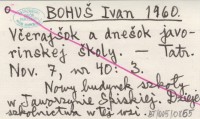 BOHUŠ Ivan 1960.
Včerajšok a dnešok javo-
rinskej školy. — Tatr.
Nov. 7, nr 40: 3.
Nowy budynek szkoły
w Jaworzynie Spiskiej. Dzieje
szkolnictwa w tej wsi.